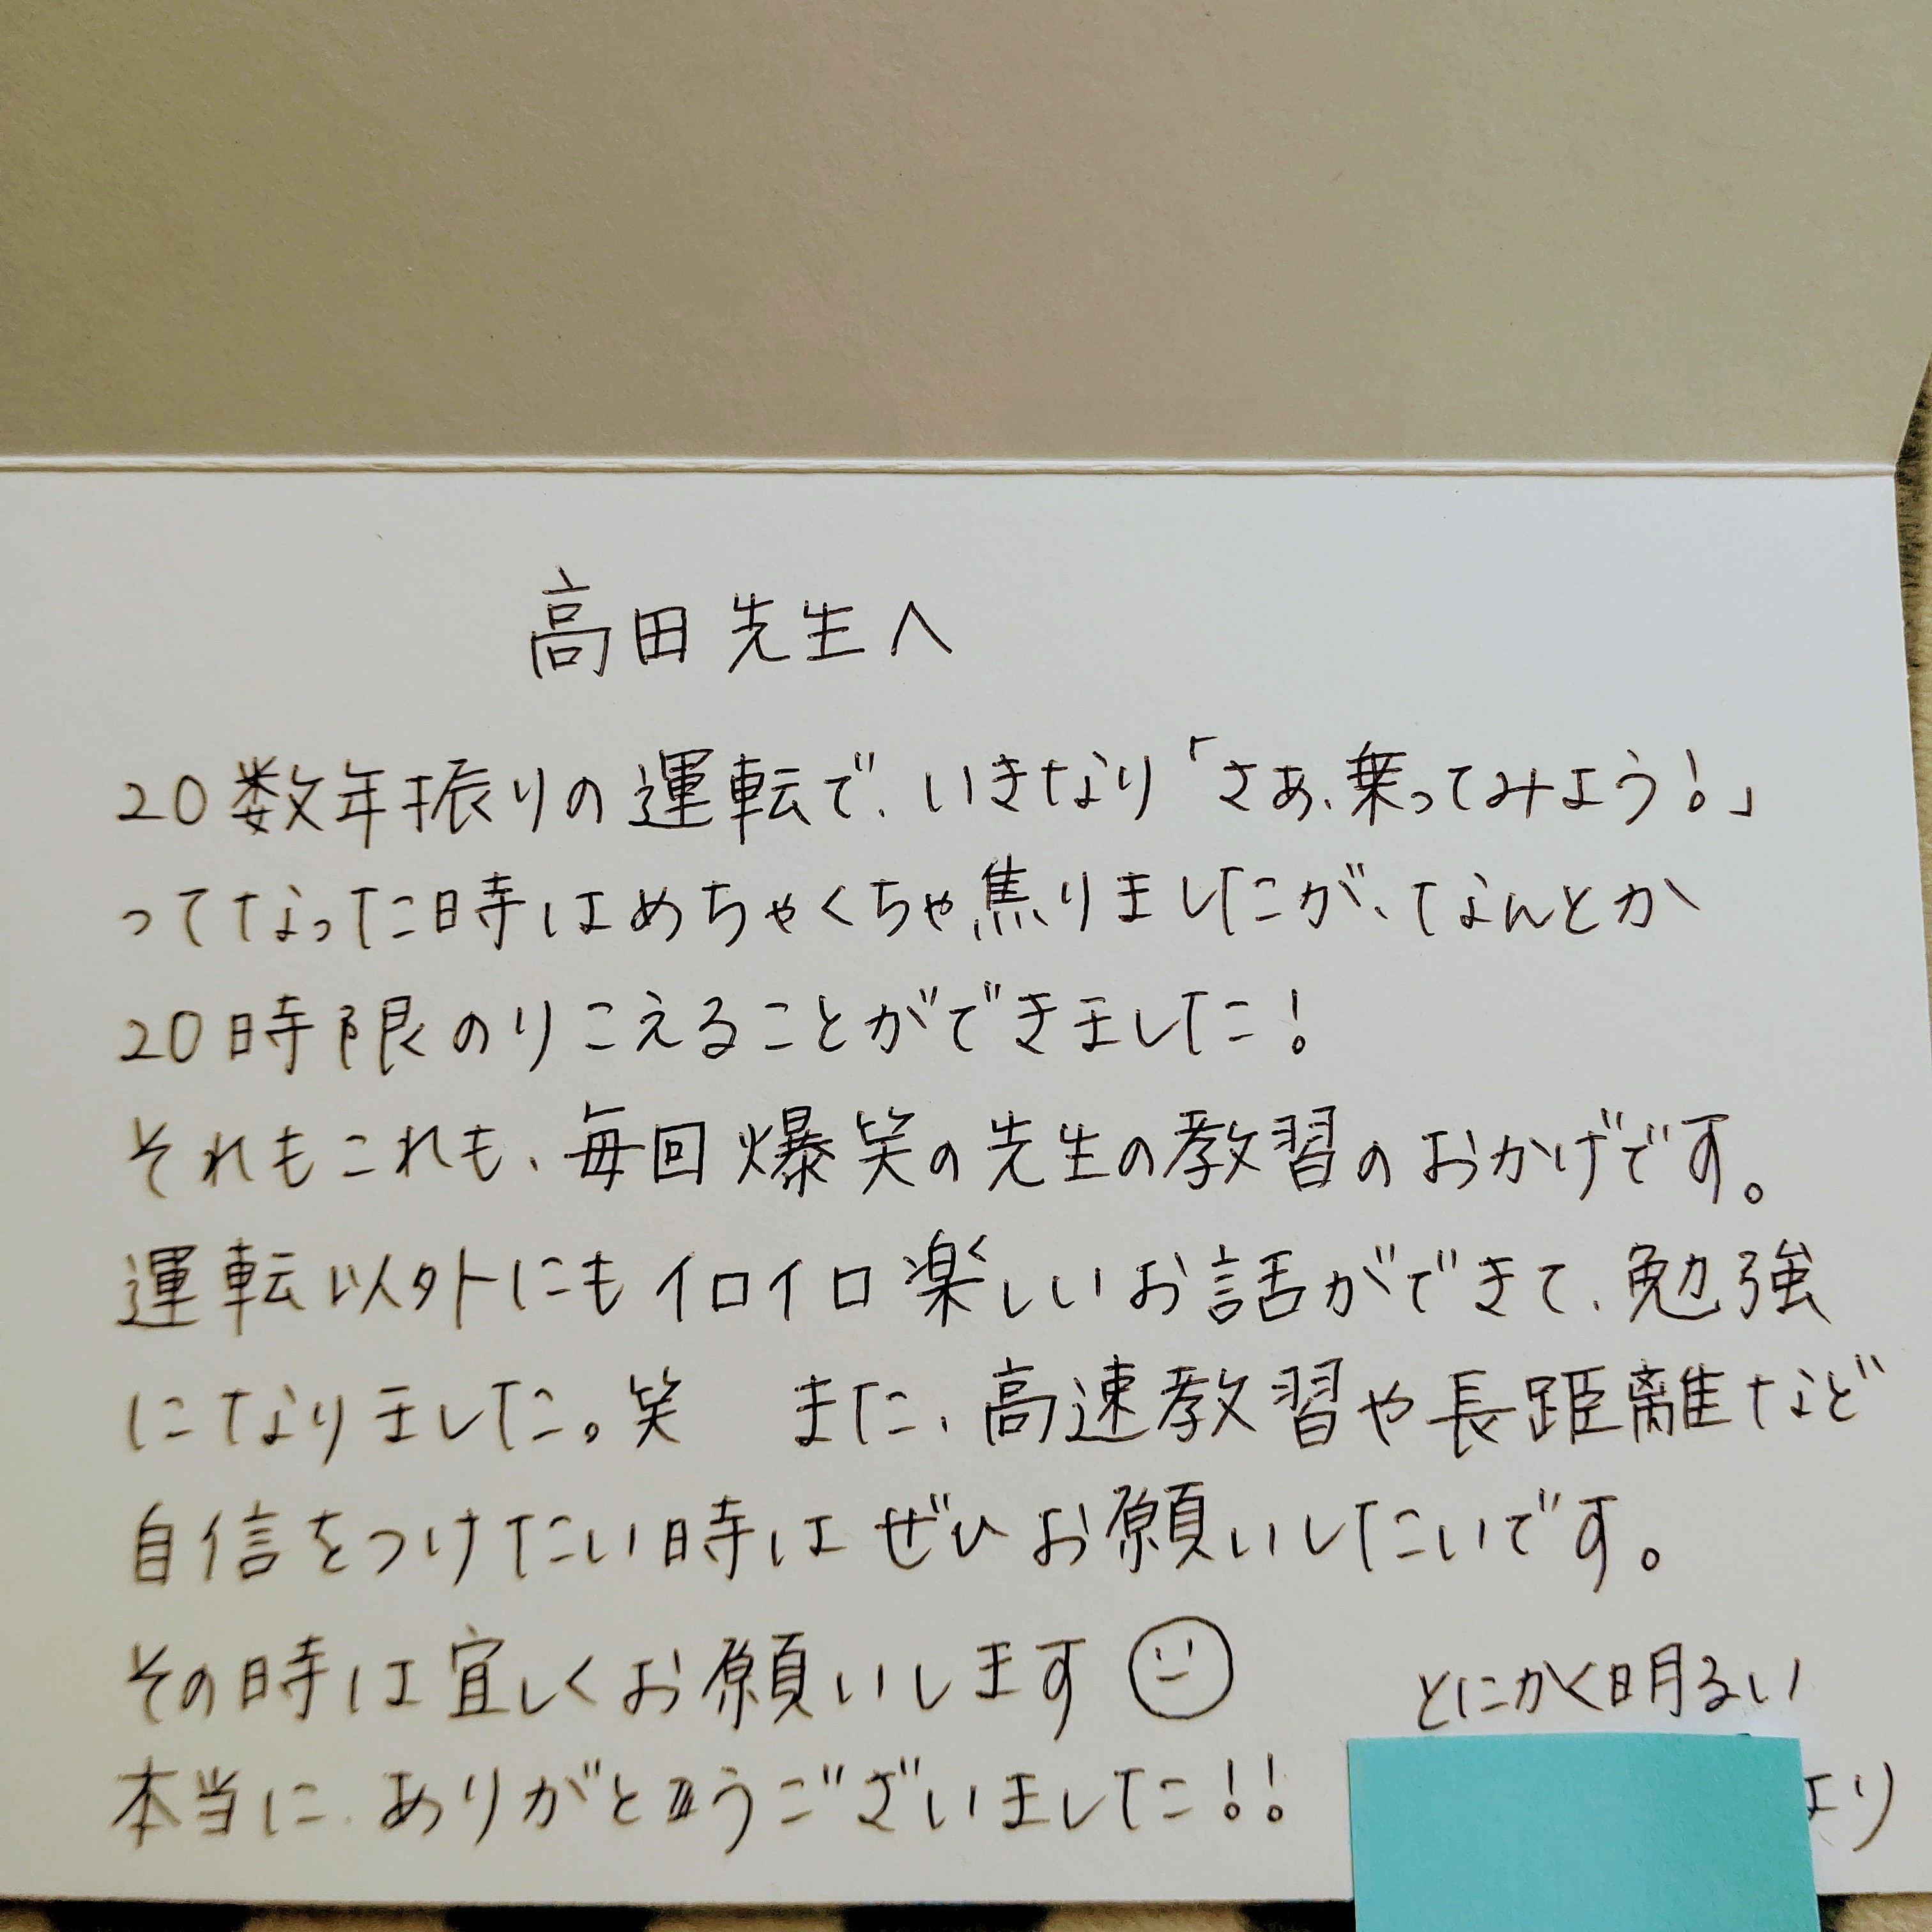 高田先生へ
20数年振りの運転で、いきなり「さあ、乗ってみよう!」
ってなった時はめちゃくちゃ焦りましたが、なんとか
20時限のりこえることができました!
それもこれも、毎回爆笑の先生の教習のおかげです。
運転以外にもイロイロ楽しいお話ができて、勉強
になりました。笑 また、高速教習や長距離など
自信をつけたい時はぜひお願いしたいです。
その時は宜しくお願いします
本当に、ありがとうございました!!
とにかく明るい
より